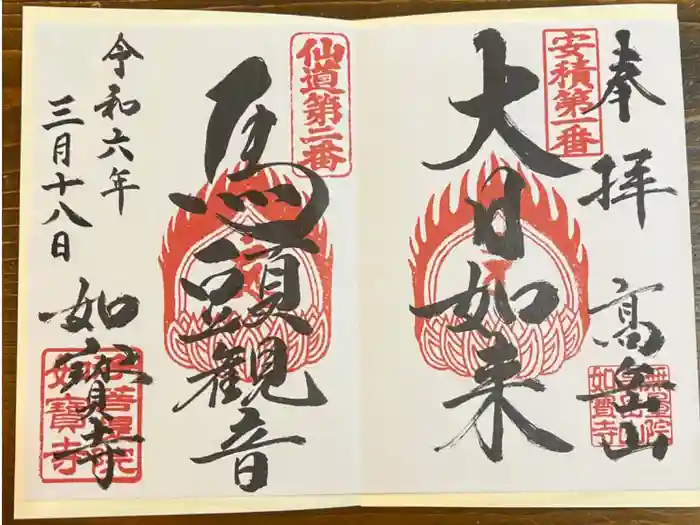 奉拝
高岳山
安積第一番
大日如来
仙道第二番
馬頭観音
令和六年
三月十八日
如寳寺
如寶寺